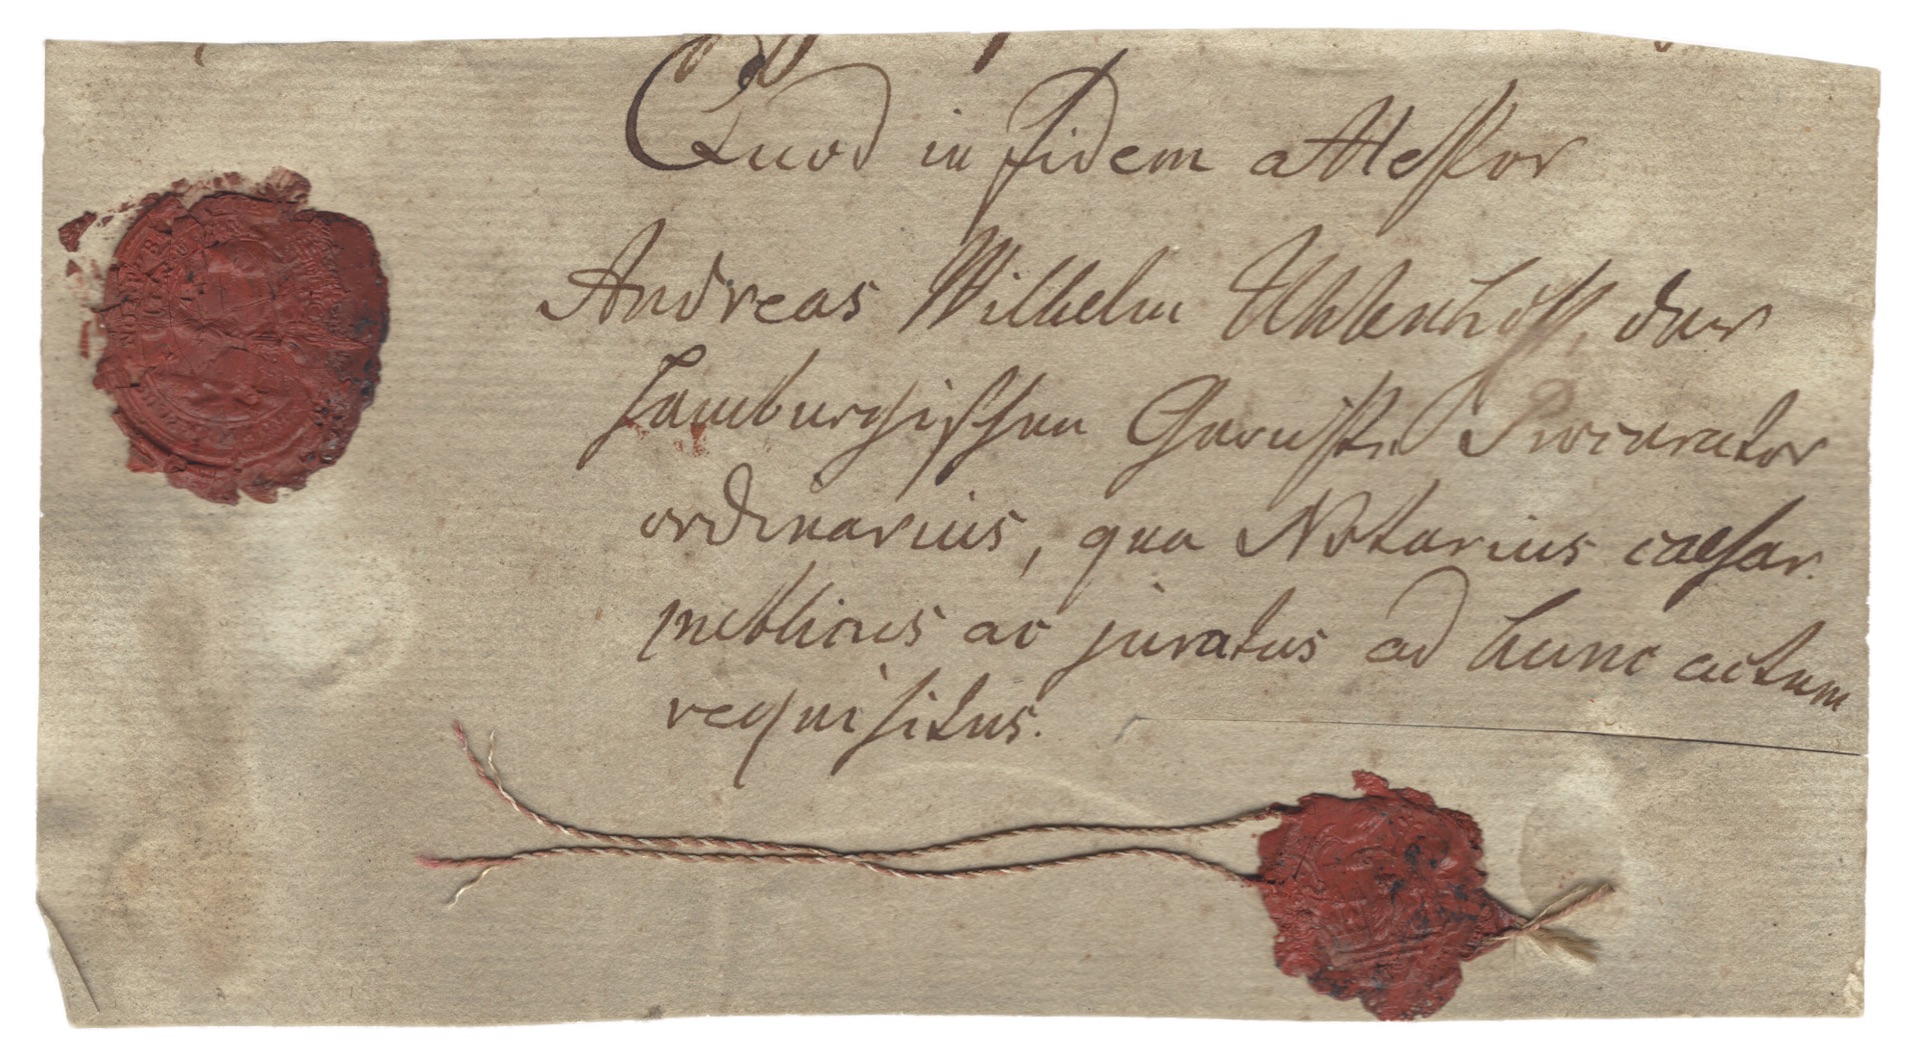 Quod in fidem attestor
Andreas Wilhelm Uhlenhoff, der
Hamburgischen Gerichte Procurator
ordinarius, qua Notarius caesar.
publicus ac juratus ad hunc actum
requisitus.